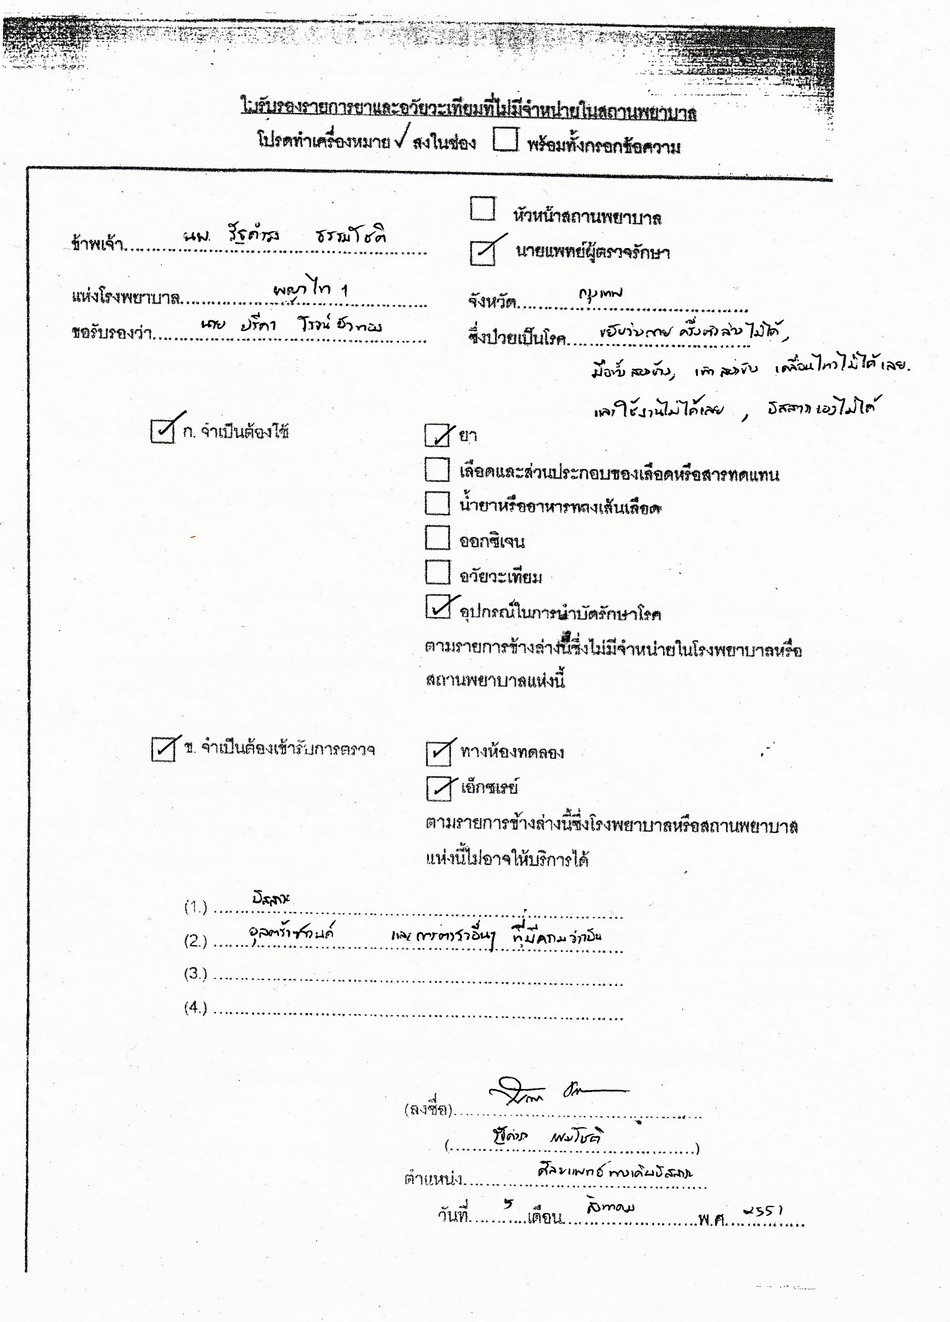 ใบรับรองรายการยาและอวัยวะเทียมที่ไม่มีจำหน่ายในสถานพยาบาล
โปรดทำเครื่องหมาย ✓ ลงในช่อง ☐ พร้อมทั้งกรอกข้อความ
☐ หัวหน้าสถานพยาบาล
ข้าพเจ้า นพ. รัฐดำรง ธรรมโชติ
☑ นายแพทย์ผู้ตรวจรักษา
แห่งโรงพยาบาล พญาไท 1 จังหวัด กรุงเทพ
ขอรับรองว่า นาย ปรีดา ซึ่งป่วยเป็นโรค ขยับร่างกาย ครึ่งตัวล่างไม่ได้,
มือทั้งสองข้าง, เท้าสองข้าง เคลื่อนไหวไม่ได้เลย.
และใช้งานไม่ได้เลย , ปัสสาวะเองไม่ได้
☑ ก. จำเป็นต้องใช้ ☑ ยา
☐ เลือดและส่วนประกอบของเลือดหรือสารทดแทน
☐ น้ำยาหรืออาหารทางเส้นเลือด
☐ ออกซิเจน
☐ อวัยวะเทียม
☑ อุปกรณ์ในการบำบัดรักษาโรค
ตามรายการข้างล่างนี้ซึ่งไม่มีจำหน่ายในโรงพยาบาลหรือ
สถานพยาบาลแห่งนี้
☑ ข. จำเป็นต้องเข้ารับการตรวจ ☑ ทางห้องทดลอง
☑ เอ็กซเรย์
ตามรายการข้างล่างนี้ซึ่งโรงพยาบาลหรือสถานพยาบาล
แห่งนี้ไม่อาจให้บริการได้
(1.) ปัสสาวะ
(2.) อุลตร้าซาวนด์ และการตรวจอื่นๆ ที่มีความจำเป็น
(3.)
(4.)
(ลงชื่อ)
(รัฐดำรง ธรรมโชติ)
ตำแหน่ง ศัลยแพทย์ทางเดินปัสสาวะ
วันที่ 5 เดือน สิงหาคม พ.ศ. 2551